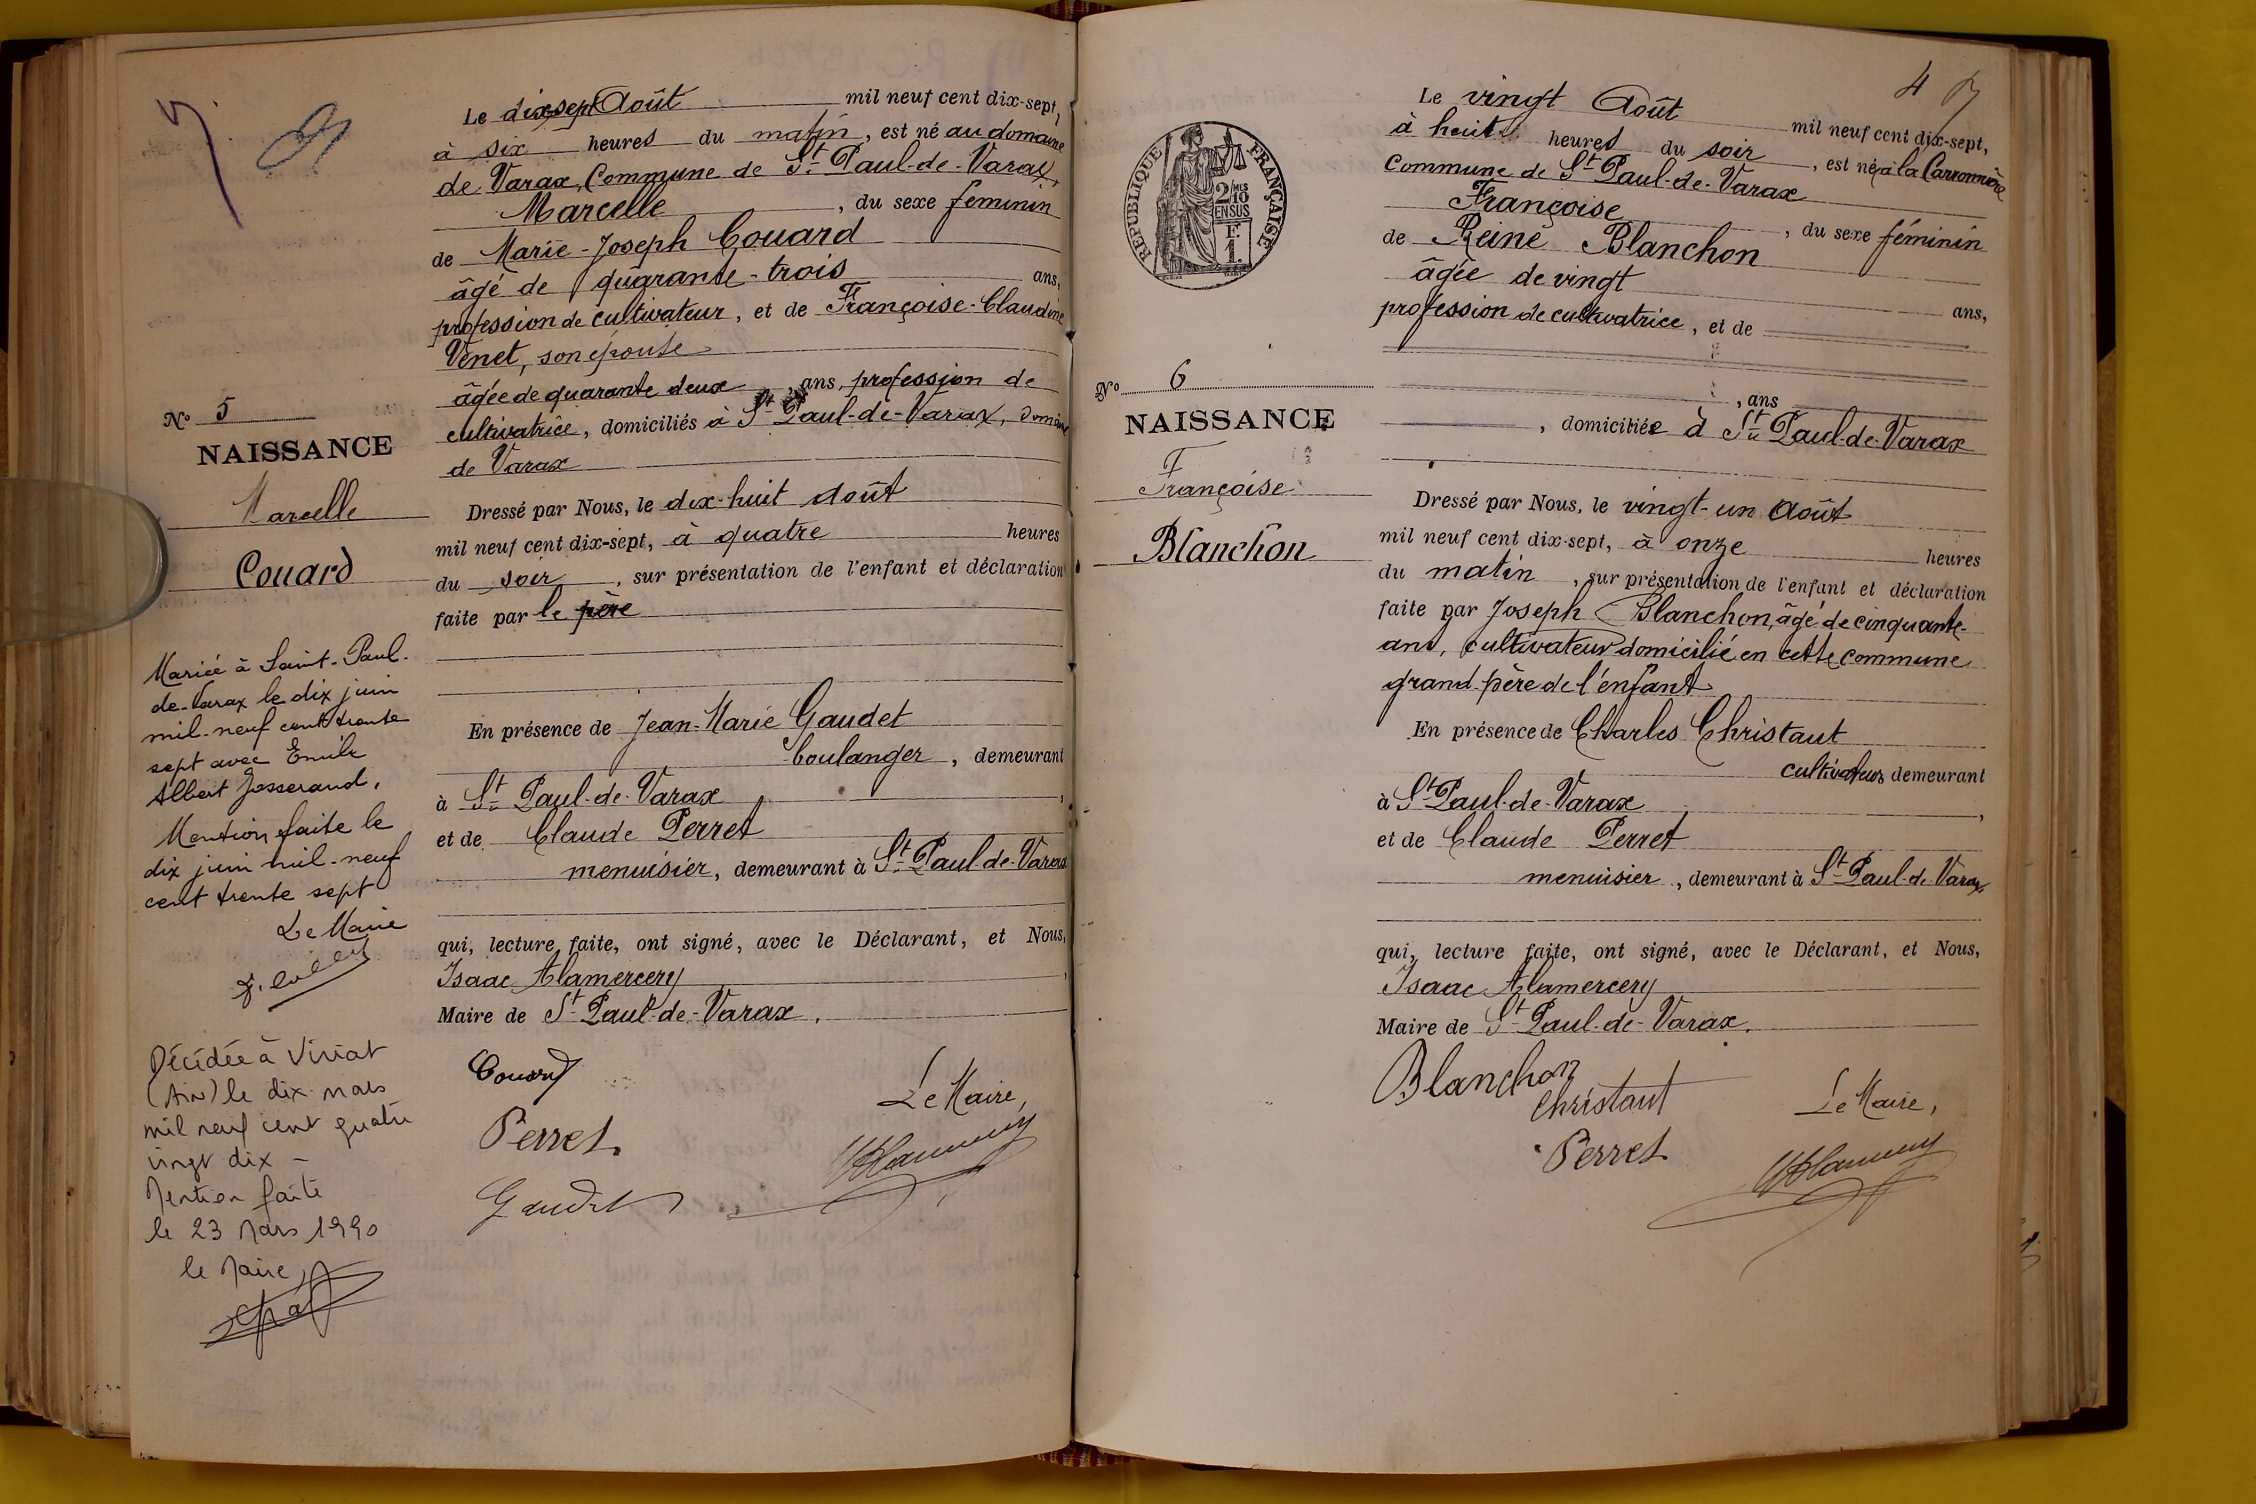 Le dix-sept Août mil neuf cent dix-sept,
à six heures du matin, est né au domaine
de Varax, Commune de St Paul-de-Varax,
Marcelle, du sexe féminin
de Marie-Joseph Couard
âgé de quarante-trois ans,
profession de cultivateur, et de Françoise-Claudine
Venet, son épouse
âgée de quarante deux, ans, profession de
cultivatrice, domiciliés à St Paul-de-Varax, domaine
de Varax
Dressé par Nous, le dix-huit Août
mil neuf cent dix-sept, à quatre heures
du soir, sur présentation de l'enfant et déclaration
faite par le père
En présence de Jean-Marie Gaudet
boulanger, demeurant
à St Paul-de-Varax,
et de Claude Perret
menuisier, demeurant à St Paul-de-Varax
qui, lecture faite, ont signé, avec le Déclarant, et Nous,
Isaac Alamercery,
Maire de St Paul-de-Varax.
Couard
Perret
Gaudet
Le Maire,
No 5
NAISSANCE
Marcelle
Couard
Mariée à Saint-Paul-
de-Varax le dix juin
mil-neuf cent trente
sept avec Emile
Albert Josserand.
Mention faite le
dix juin mil-neuf
cent trente sept
Le Maire
Décédée à Viriat
(Ain) le dix mars
mil neuf cent quatre
vingt dix -
Mention faite
le 23 Mars 1990
le Maire
4
Le vingt Août mil neuf cent dix-sept,
à huit heures du soir, est née à la Carronnière
Commune de St Paul-de-Varax
Françoise, du sexe féminin
de Reine Blanchon
âgée de vingt ans,
profession de cultivatrice, et de
, ans
, domiciliée à St Paul-de-Varax
Dressé par Nous, le vingt-un Août
mil neuf cent dix-sept, à onze heures
du matin, sur présentation de l'enfant et déclaration
faite par Joseph Blanchon, âgé de cinquante-
ans, cultivateur domicilié en cette commune
grand-père de l'enfant
En présence de Charles Christaut
cultivateur demeurant
à St Paul-de-Varax,
et de Claude Perret
menuisier, demeurant à St Paul-de-Varax
qui, lecture faite, ont signé, avec le Déclarant, et Nous,
Isaac Alamercery
Maire de St Paul-de-Varax.
Blanchon
Christaut
Perret
Le Maire,
RÉPUBLIQUE FRANÇAISE
2/10 MES
EN SUS
F.
1.
No 6
NAISSANCE
Françoise
Blanchon